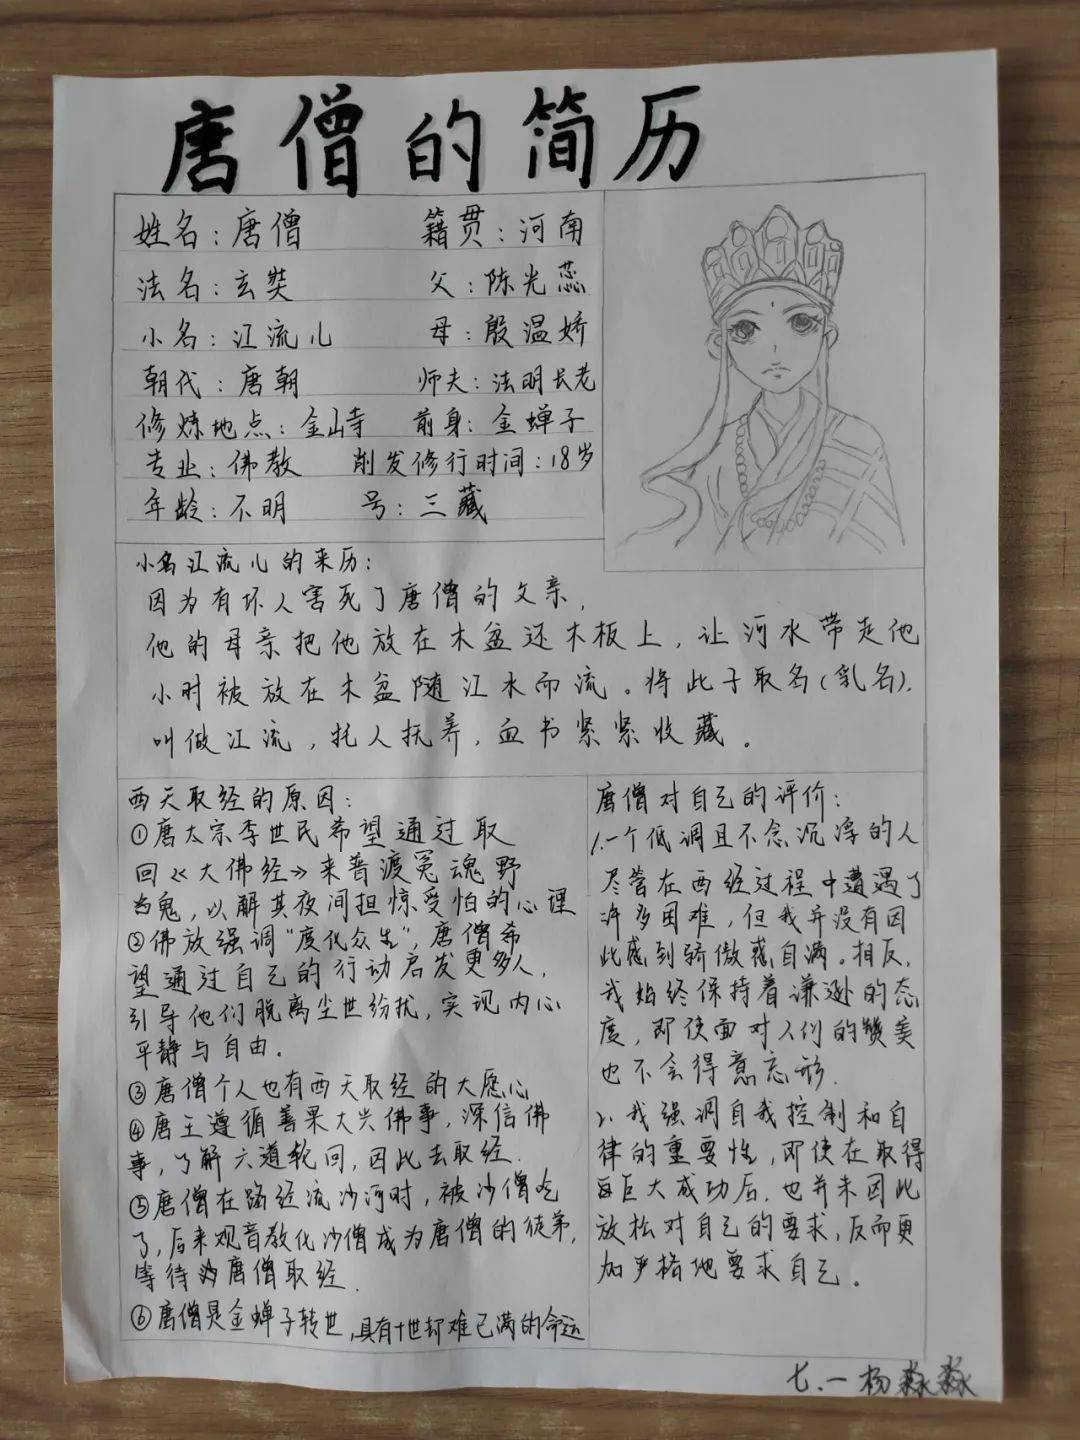 唐僧的简历
姓名：唐僧 籍贯：河南
法名：玄奘 父：陈光蕊
小名：江流儿 母：殷温娇
朝代：唐朝 师夫：法明长老
修炼地点：金山寺 前身：金蝉子
专业：佛教 削发修行时间：18岁
年龄：不明 号：三藏
小名江流儿的来历：
因为有坏人害死了唐僧的父亲，
他的母亲把他放在木盆还木板上，让河水带走他
小时被放在木盆随江水而流。将此子取名(乳名)，
叫做江流，托人抚养，血书紧紧收藏。
西天取经的原因：
①唐太宗李世民希望通过取
回《大佛经》来普渡冤魂野
鬼，以解其夜间担惊受怕的心理
②佛放强调“度化众生”，唐僧希
望通过自己的行动启发更多人，
引导他们脱离尘世纷扰，实现内心
平静与自由．
③唐僧个人也有西天取经的大愿心
④唐王遵循善果大兴佛事，深信佛
事，了解六道轮回，因此去取经．
⑤唐僧在路经流沙河时，被沙僧吃
了，后来观音教化沙僧成为唐僧的徒弟，
等待唐僧取经．
⑥唐僧是金蝉子转世，具有十世却难已满的命运
唐僧对自己的评价：
1.一个低调且不念沉浮的人
尽管在西经过程中遭遇了
许多困难，但我并没有因
此感到骄傲惑自满。相反，
我始终保持着谦逊的态
度，即使面对人们的赞美
也不会得意忘形．
2．我强调自我控制和自
律的重要性，即使在取得
巨大成功后，也并未因此
放松对自己的要求，反而更
加严格地要求自己。
七．一杨淼淼